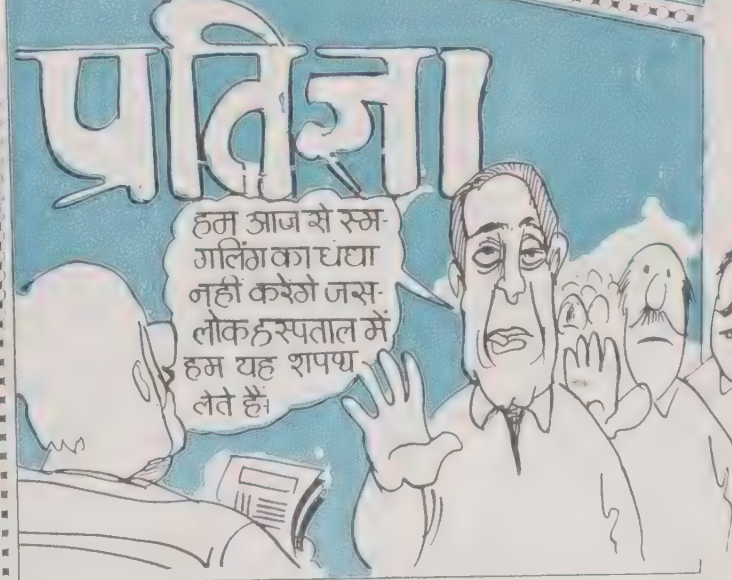 प्रतिज्ञा
हम आज से स्म-
गलिंग का धंधा
नहीं करेंगे जस-
लोक हस्पताल में
हम यह शपथ
लेते हैं।